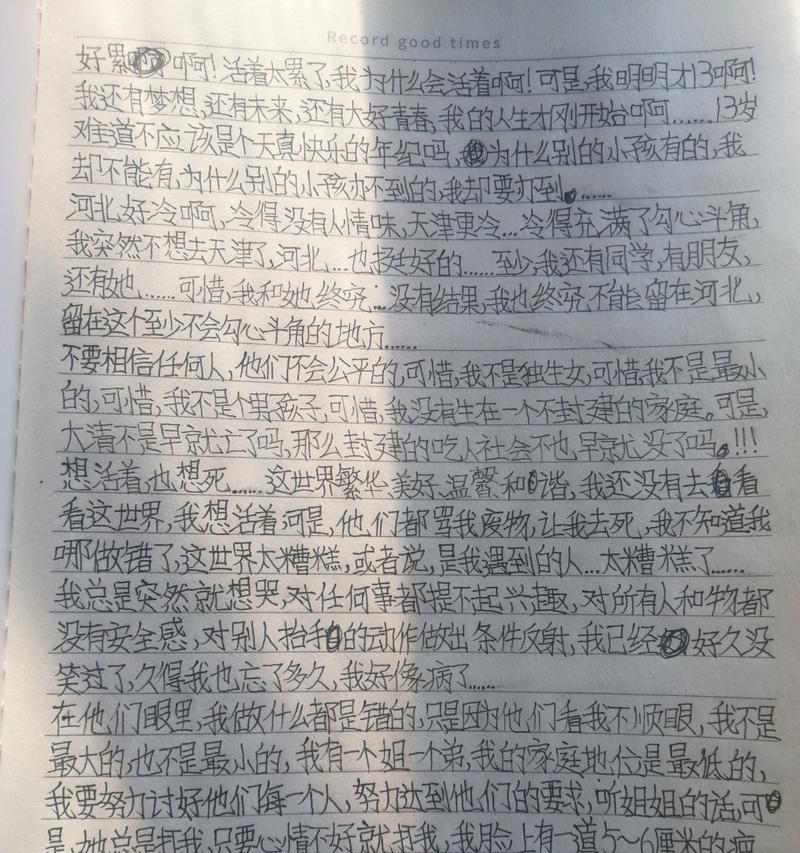 Record good times
好累啊！活着太累了，我为什么会活着啊！可是，我明明才13啊！
我还有梦想，还有未来，还有大好青春，我的人生才刚开始啊……13岁
难道不应该是个天真快乐的年纪吗，为什么别的小孩有的，我
却不能有，为什么别的小孩办不到的，我却要办到。……
河北好冷啊，冷得没有人情味，天津更冷…冷得充满了勾心斗角，
我突然不想去天津了，河北…也挺好的……至少，我还有同学，有朋友，
还有她……可惜，我和她终究…没有结果，我也终究不能留在河北，
留在这个至少不会勾心斗角的地方……
不要相信任何人，他们不会公平的，可惜，我不是独生女，可惜，我不是最小
的，可惜，我不是个男孩子，可惜，我没有生在一个不封建的家庭。可是，
大清不是早就亡了吗，那么封建的吃人社会不也早就没了吗。!!!
想活着，也想死……这世界繁华、美好、温馨、和谐，我还没有去看
看这世界，我想活着，可是，他们都骂我废物，让我去死，我不知道我
哪做错了，这世界太糟糕，或者说，是我遇到的人…太糟糕了……
我总是突然就想哭，对任何事都提不起兴趣，对所有人和物都
没有安全感，对别人抬手的动作做出条件反射，我已经好久没
笑过了，久得我也忘了多久，我好像病了……
在他们眼里，我做什么都是错的，只是因为他们看我不顺眼，我不是
最大的，也不是最小的，我有一个姐一个弟，我的家庭地位是最低的，
我要努力讨好他们每一个人，努力达到他们的要求，听姐姐的话，可
是，她总是打我，只要心情不好就打我，我脸上有一道5~6厘米的疤